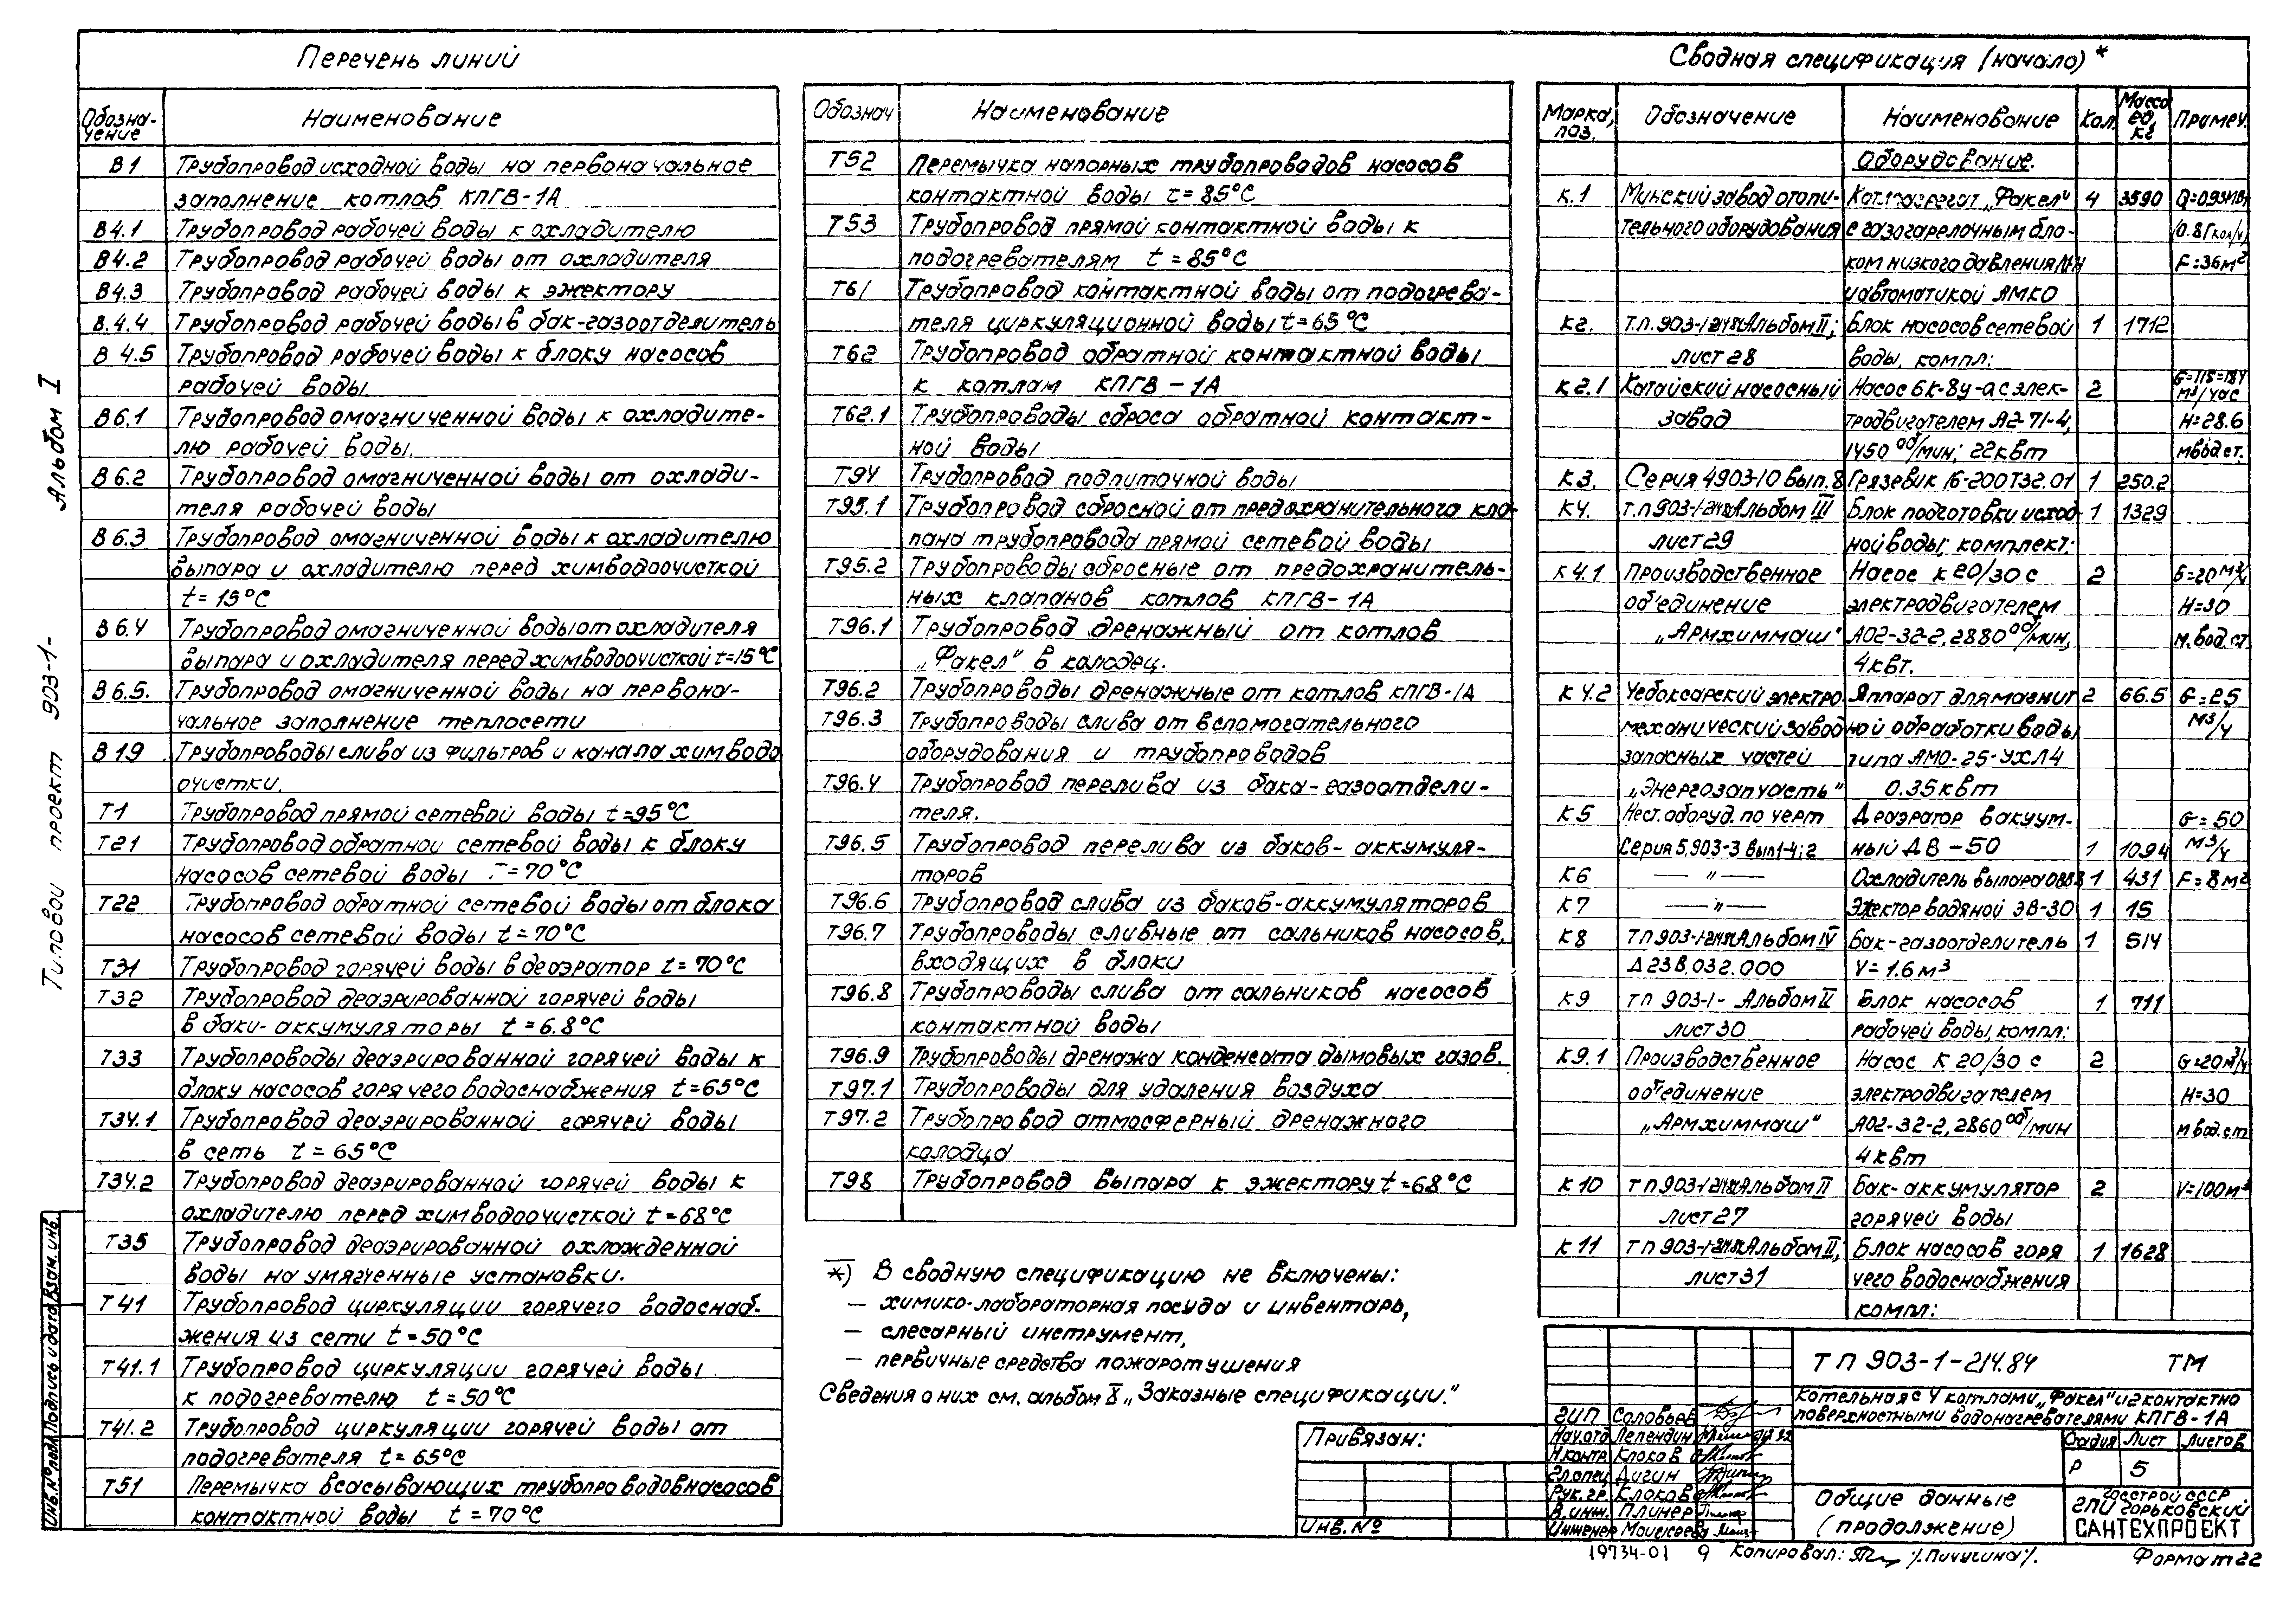 Перечень линий
Обозна-
чение
Наименование
В1 Трубопровод исходной воды на первоначальное
заполнение котлов КПГВ-1А
В4.1 Трубопровод рабочей воды к охладителю
В4.2 Трубопровод рабочей воды от охладителя
В4.3 Трубопровод рабочей воды к эжектору
В.4.4 Трубопровод рабочей воды в бак-газоотделитель
В 4.5 Трубопровод рабочей воды к блоку насосов
рабочей воды.
В6.1 Трубопровод омагниченной воды к охладите-
лю рабочей воды.
В6.2 Трубопровод омагниченной воды от охлади-
теля рабочей воды
В6.3 Трубопровод омагниченной воды к охладителю
выпара и охладителю перед химводоочисткой
t=15°С
В6.4 Трубопровод омагниченной воды от охладителя
выпара и охладителя перед химводоочисткой t=15°С
В6.5. Трубопровод омагниченной воды на первона-
чальное заполнение теплосети
В19 Трубопроводы слива из фильтров и канала химводо
очистки.
Т1 Трубопровод прямой сетевой воды t=95°С
Т21 Трубопровод обратной сетевой воды к блоку
насосов сетевой воды =70°С
Т22 Трубопровод обратной сетевой воды от блока
насосов сетевой воды t=70°С
Т31 Трубопровод горячей воды в деаэратор t=70°С
Т32 Трубопровод деаэрированной горячей воды
в баки-аккумуляторы t=6.8°С
Т33 Трубопроводы деаэрированной горячей воды к
блоку насосов горячего водоснабжения t=65°С
Т34.1 Трубопровод деаэрированной горячей воды
в сеть t=65°С
Т34.2 Трубопровод деаэрированной горячей воды к
охладителю перед химводоочисткой t=68°С
Т35 Трубопровод деаэрированной охлажденной
воды на умягченные установки.
Т41 Трубопровод циркуляции горячего водоснаб-
жения из сети t=50°С
Т41.1 Трубопровод циркуляции горячей воды
к подогревателю t=50°С
Т41.2 Трубопровод циркуляции горячей воды от
подогревателя t=65°С
Т51 Перемычка всасывающих трубопроводов насосов
контактной воды t=70°С
Обознач Наименование
Т52 Перемычка напорных трубопроводов насосов
контактной воды t=85°С
Т53 Трубопровод прямой контактной воды к
подогревателям t=85°С
Т61 Трубопровод контактной воды от подогрева-
теля циркуляционной воды t=65°С
Т62 Трубопровод обратной контактной воды
к котлам КПГВ-1А
Т62.1 Трубопроводы сброса обратной контакт-
ной воды
Т94 Трубопровод подпиточной воды
Т95.1 Трубопровод сбросной от предохранительного кла-
пана трубопровода прямой сетевой воды
Т95.2 Трубопроводы сбросные от предохранитель-
ных клапанов котлов КПГВ-1А
Т96.1 Трубопровод дренажный от котлов
„Факел" в колодец.
Т96.2 Трубопроводы дренажные от котлов КПГВ-1А
Т96.3 Трубопроводы слива от вспомогательного
оборудования и трубопроводов
Т96.4 Трубопровод перелива из бака-газоотдели-
теля.
Т96.5 Трубопровод перелива из баков-аккумуля-
торов
Т96.6 Трубопровод слива из баков-аккумуляторов
Т96.7 Трубопроводы сливные от сальников насосов,
входящих в блоки
Т96.8 Трубопроводы слива от сальников насосов
контактной воды
Т96.9 Трубопроводы дренажа конденсата дымовых газов.
Т97.1 Трубопроводы для удаления воздуха
Т97.2 Трубопровод атмосферный дренажного
колодца
Т98 Трубопровод выпара к эжектору t=68°С
*) В сводную спецификацию не включены:
— химико-лабораторная посуда и инвентарь,
— слесарный инструмент,
— первичные средства пожаротушения
Сведения о них см. альбом X „Заказные спецификации."
Сводная спецификация (начало)*
Марка, поз. Обозначение Наименование Кол. Масса ед, кг Примеч.
Оборудование.
К.1 Минский завод отопи- Котлоагрегат „Факел" 4 3590 Q=0.93МВт
тельного оборудования с газогорелочным бло- (0.8Гкал/ч)
ком низкого давления F=36м²
и автоматикой АМКО
К2. т.п. 903-1-214.84 Альбом II; Блок насосов сетевой 1 1712
лист 28 воды, компл:
К2.1 Катайский насосный Насос 6К-8у-а с элек- 2 м³/час
завод тродвигателем А2-71-4, Н=28.6
1450 об/мин; 22квт м вод.ст.
К3. Серия 4903-10 Вып.8 Грязевик 16-200Т32.01 1 250.2
К4. т.п 903-1-214.84 Альбом III Блок подготовки исход- 1 1329
лист 29 ной воды; комплект:
К4.1 Производственное Насос К 20/30 с 2 G=20 м³/ч
объединение электродвигателем Н=30
„Армхиммаш" А02-32-2, 2880 об/мин, м.вод.ст
4квт.
К4.2 Чебоксарский электро Аппарат для магнит 2 66.5 G=25
механический завод ной обработки воды м³/ч
запасных частей типа АМО-25-УХЛ4
„Энергозапчасть" 0.35квт
К5 Нест. оборуд. по черт Деаэратор вакуум- G=50
Серия 5.903-3 вып1-4;2 ный ДВ-50 1 1094 м³/ч
К6 — " — Охладитель выпара ОВВ8 1 431 F=8м²
К7 — " — Эжектор водяной ЭВ-30 1 15
К8 т п 903-1-214.84 Альбом IV Бак-газоотделитель 1 514
Д238.032.000 V=1.6м³
К9 тп 903-1- Альбом II Блок насосов 1 711
лист 30 рабочей воды, компл:
К9.1 Производственное Насос К 20/30 с 2 G=20м³/ч
объединение электродвигателем Н=30
„Армхиммаш" А02-32-2, 2860 об/мин м вод.ст
4квт
К10 т п 903-1-214.84 Альбом II Бак-аккумулятор 2 V=100м³
лист 27 горячей воды
К11 т п 903-1-214.84 Альбом II; Блок насосов горя 1 1628
лист 31 чего водоснабжения
компл:
Привязан:
Инв. №
ТП 903-1-214.84 ТМ
Котельная с 4 котлами „Факел" и 2 контактно
поверхностными водонагревателями КПГВ-1А
ГИП Соловьев
Нач.отд Лепендин
Н.контр. Клоков
Гл.спец Дигин
Рук.гр. Клоков
В.инж. Плинер
Инженер Моисеева
Стадия Лист Листов
Р 5
Общие данные
(продолжение)
Госстрой СССР
ГПИ Горьковский
САНТЕХПРОЕКТ
19734-01 9 Копировал: /.Пичугина/. Формат 22
Типовой проект 903-1- Альбом I
Инв.№ подл. Подпись и дата Взам. инв.